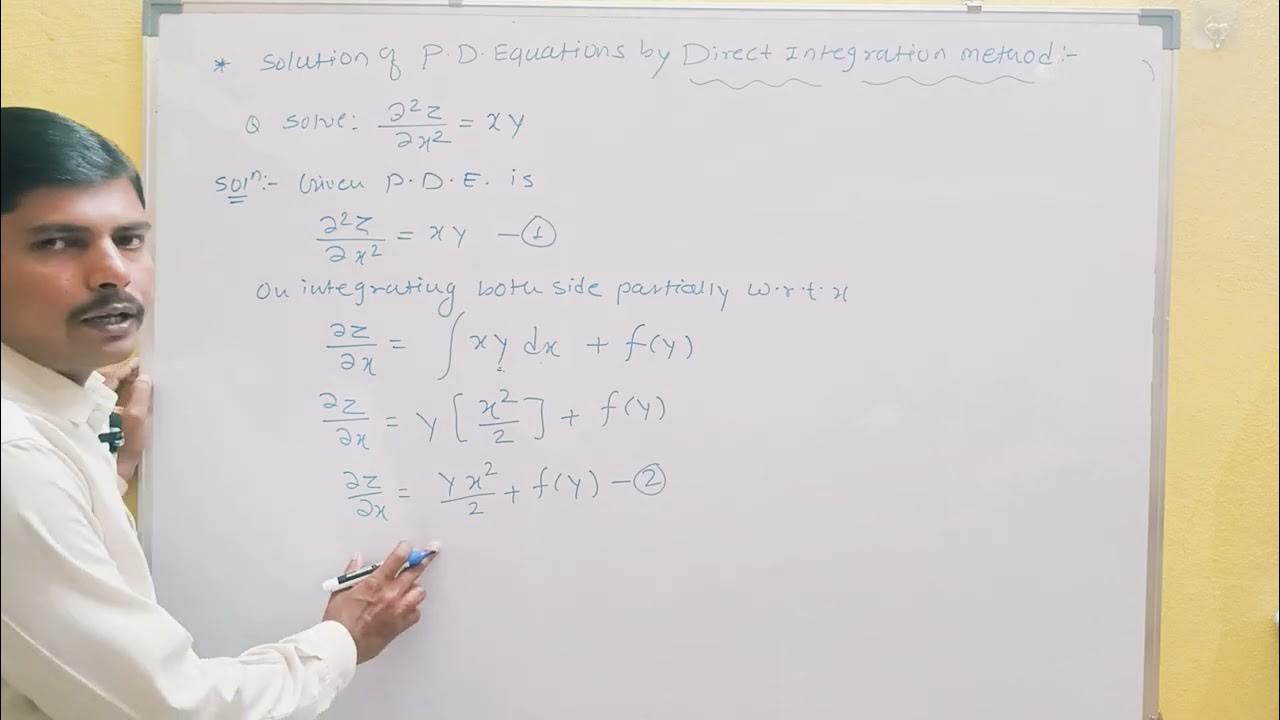 * Solution of P.D. Equations by Direct Integration method:-
Q Solve: ∂²z/∂x² = xy
Solⁿ:- Given P.D.E. is
∂²z/∂x² = xy — ①
On integrating both side partially w.r.t. x
∂z/∂x = ∫ xy dx + f(y)
∂z/∂x = y [x²/2] + f(y)
∂z/∂x = yx²/2 + f(y) — ②